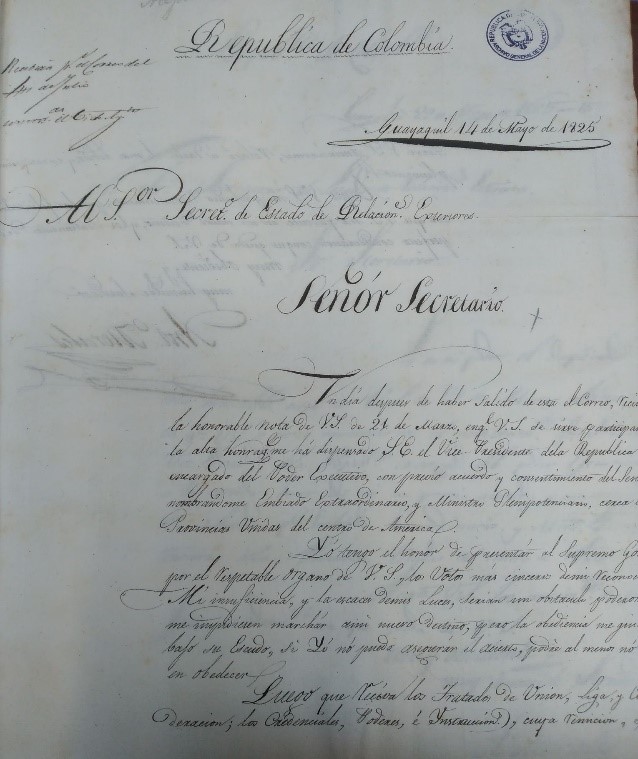 Republica de Colombia.
REPUBLICA DE
ARCHIVO GENERAL DE LA NACION
Guayaquil 14 de Mayo de 1825
Al S.or Secret.o de Estado de Relacion.s Exteriores.
Señór Secretario.
Un dia despues de haber salido de esta el Correo,
la honorable nota de V.S. de 21 de Marzo, en q.e V.S. se sirve participar
la alta honra q.e me ha dispensado S.E. el Vice-Presidente dela Republica
encargado del Poder Executivo, con previo acuerdo y consentimiento del Sen
nombrandome Embiado Extraordinario, y Ministro Plenipotenciario, cerca
Provincias Unidas del centro de America.
Yó tengo el honor de presentár al Supremo Go
por el respetable organo de V.S. los Votos más sinceros demi reconoc
Mi insuficiencia, y la escacez demis Luces, serian un obstaculo poderoso
me impidiesen marchár ami nuevo destino, pero la obediencia me
bajo su Escudo, si Yó nó puedo asegurar el acierto, podré al menos no
en obedecer.
Luego que reciva los Tratados de Union, Liga, y
deracion; los Credenciales, Poderes, é Instruccion.s, cuya remicion,